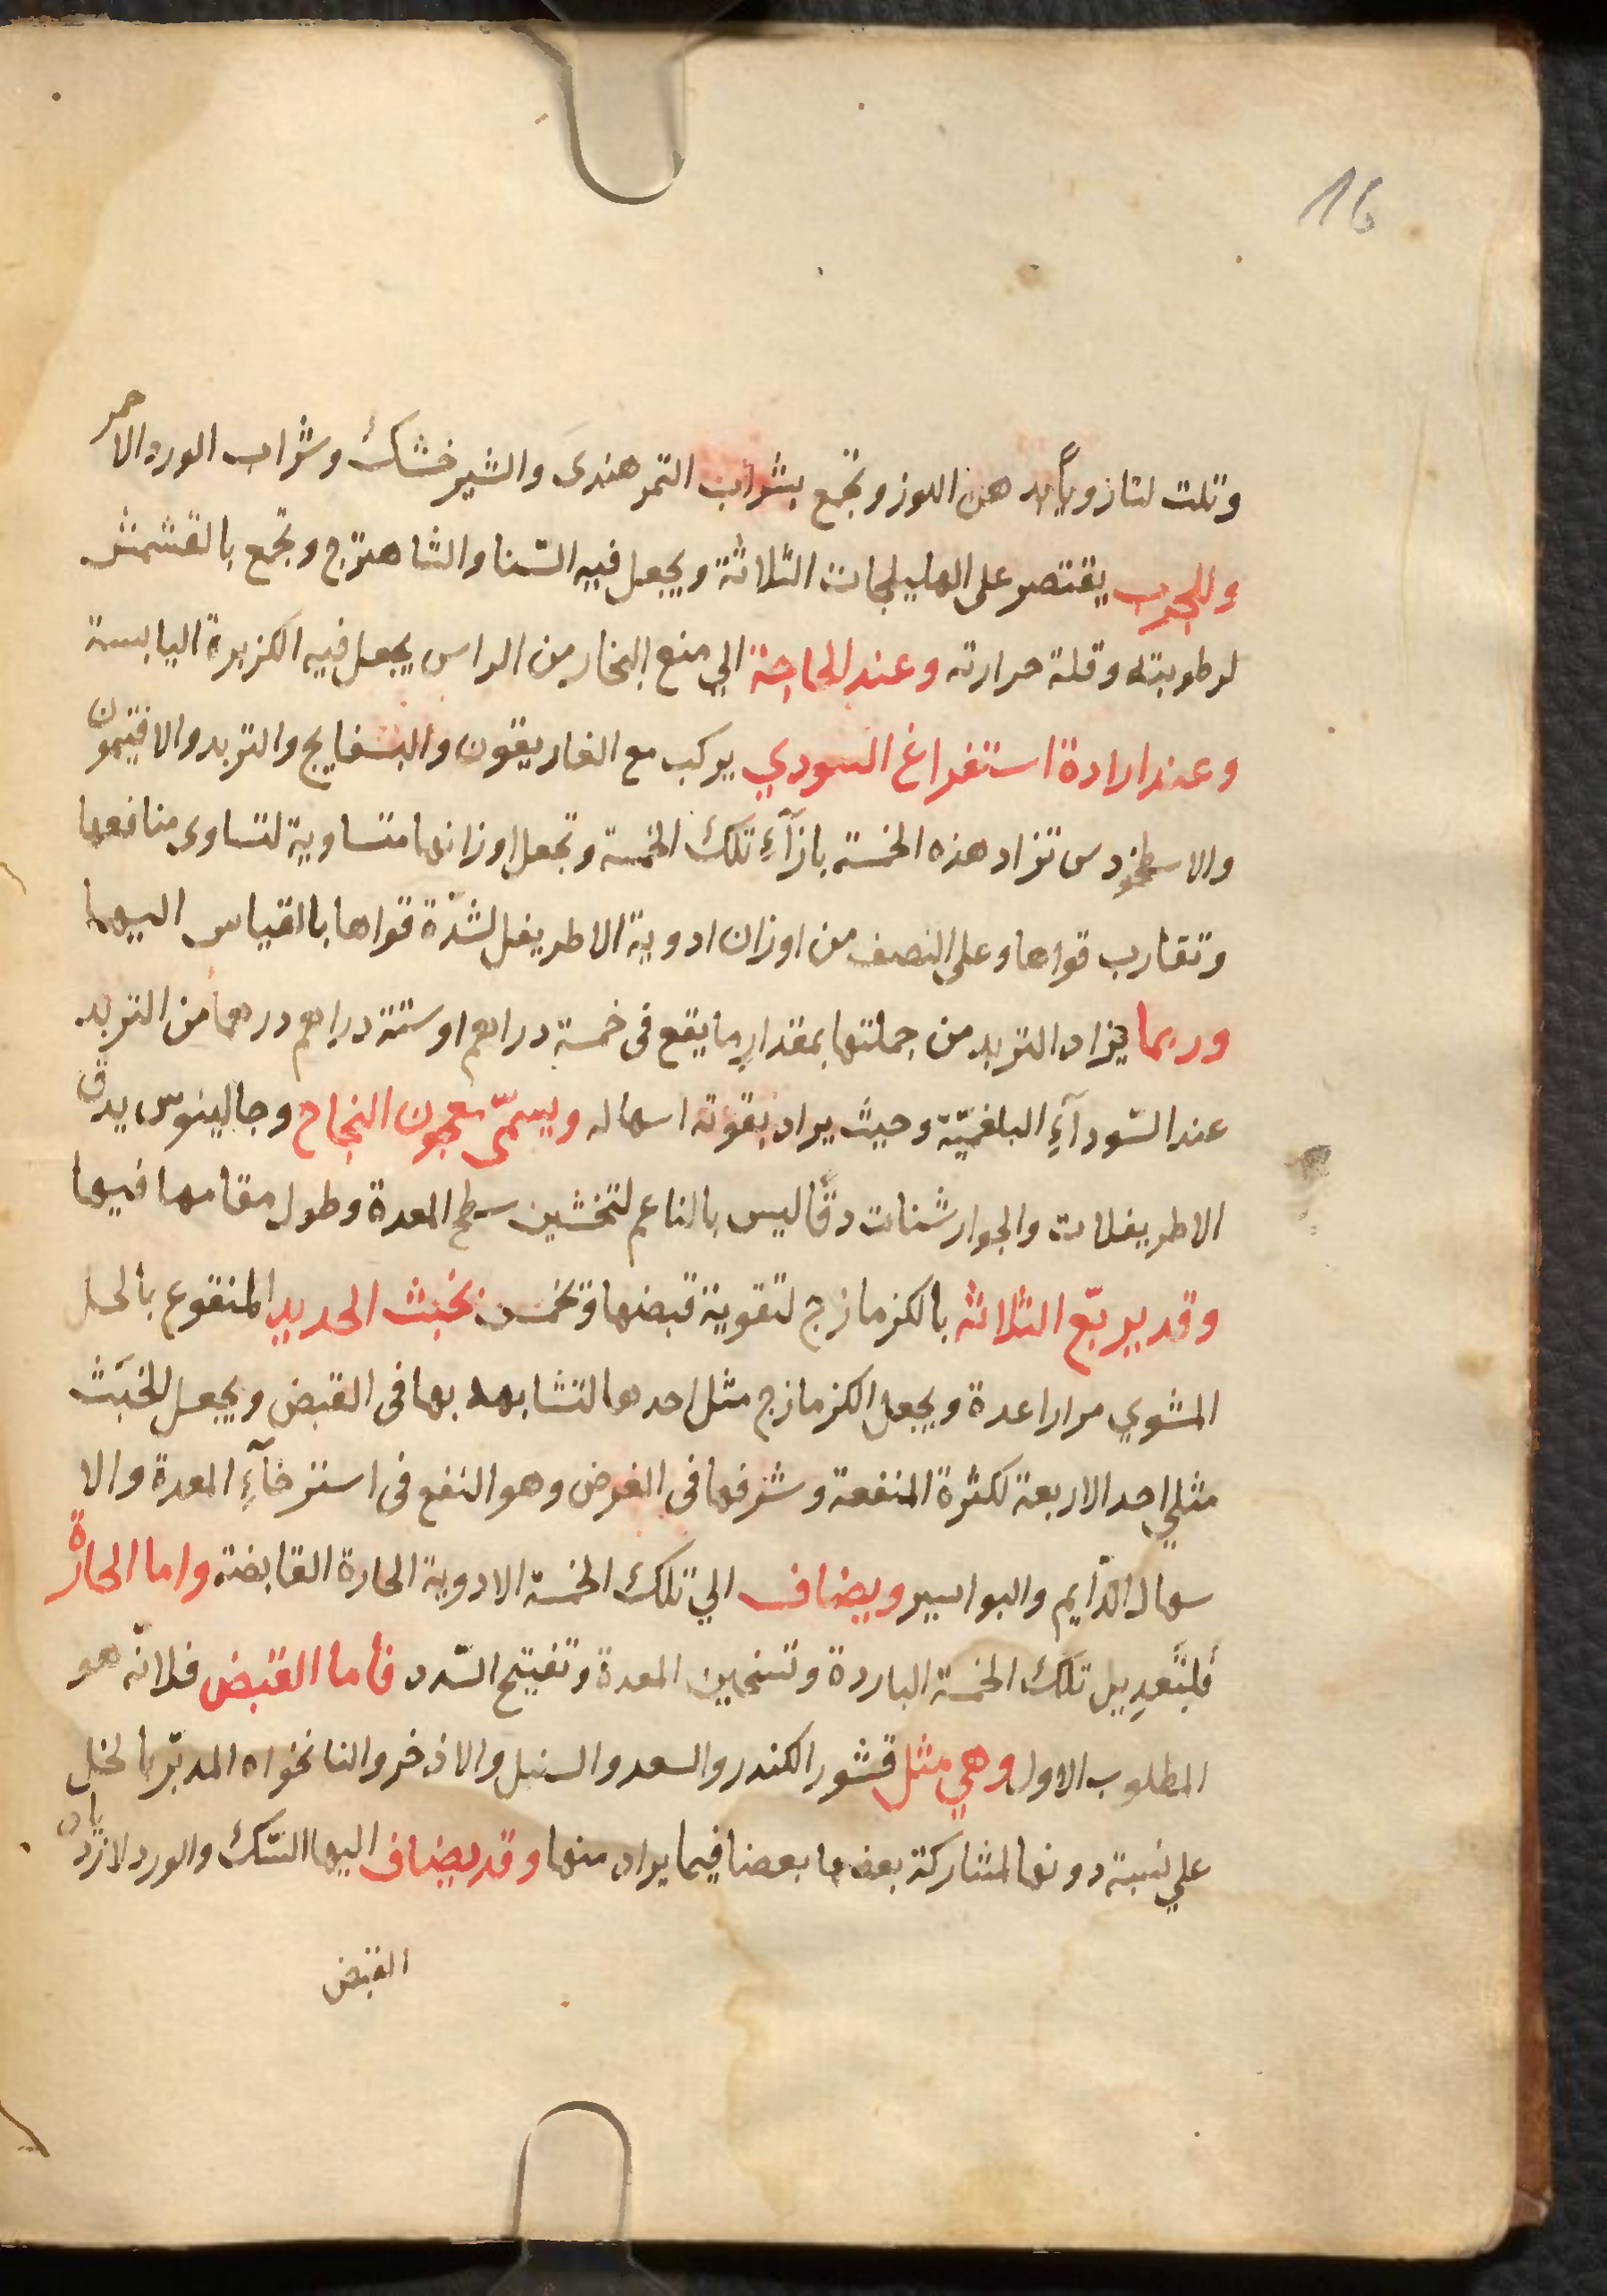 16
وتلت لتا زوياًبد هن اللوز وتجمع بشراب التمر هندى والشيرخشك وشراب الورد الاحمر
وللجرب يقتصر على الهليلجات الثلاثة ويجعل فيه السّنا والشاهترج وتجمع بالقشمش
لرطوبته وقلة حرارته وعند الحاجة الي منع البخار من الراس يجعل فيه الكزبرة اليابسة
وعند ارادة استفراغ السودي يركب مع الغاريقون والبسفايج والتربد والافتيمون
والاسطخودس تزاد هذه الخمسة بازآءِ تلك الخمسة وتجعل اوزانها متساوية لتساوى منافعها
وتقارب قواها وعلى النصف من اوزان ادوية الاطريفل لشدّة قواها بالقياس اليها
وربما يزاد التربد من جملتها بمقدار ما يقع فى خمسة دراهم او ستة دراهم درهماً من التربد
عند السّودآءِ البلغميّة وحيث يراد بقوته اسهاله ويسمّى معجون النجاح وجالينوس يدق
الاطريفلات والجوارشنات دقًّا ليس بالناعم لتخشين سطح المعدة وطول مقامها فيها
وقد يربّع الثلاثة بالكزمازج لتقوية قبضها وتخمس بخبث الحديد المنقوع بالخل
المشوي مرارا عدة ويجعل الكزمازج مثل احدها لتشابهه بها فى القبض ويجعل الخبَث
مثلي احد الاربعة لكثرة المنفعة وشرفها فى الغرض وهو النفع فى استرخآءِ المعدة والا
سهال الدّايم والبواسير ويضاف الي تلك الخمسة الادوية الحارة القابضة واما الحارة
فَلِتَعدِيل تلك الخمسة الباردة وتسخين المعدة وتفتيح السّدد فأما القبض فلانّه هو
المطلوب الاول وهي مثل قشور الكندر والسعد والسنبل والاذخر والنانخواه المدبّر بالخل
علي نسبة دونها لمشاركة بعضها بعضا فيما يراد منها وقد يضاف اليها السّك والورد لازدياد
القبض